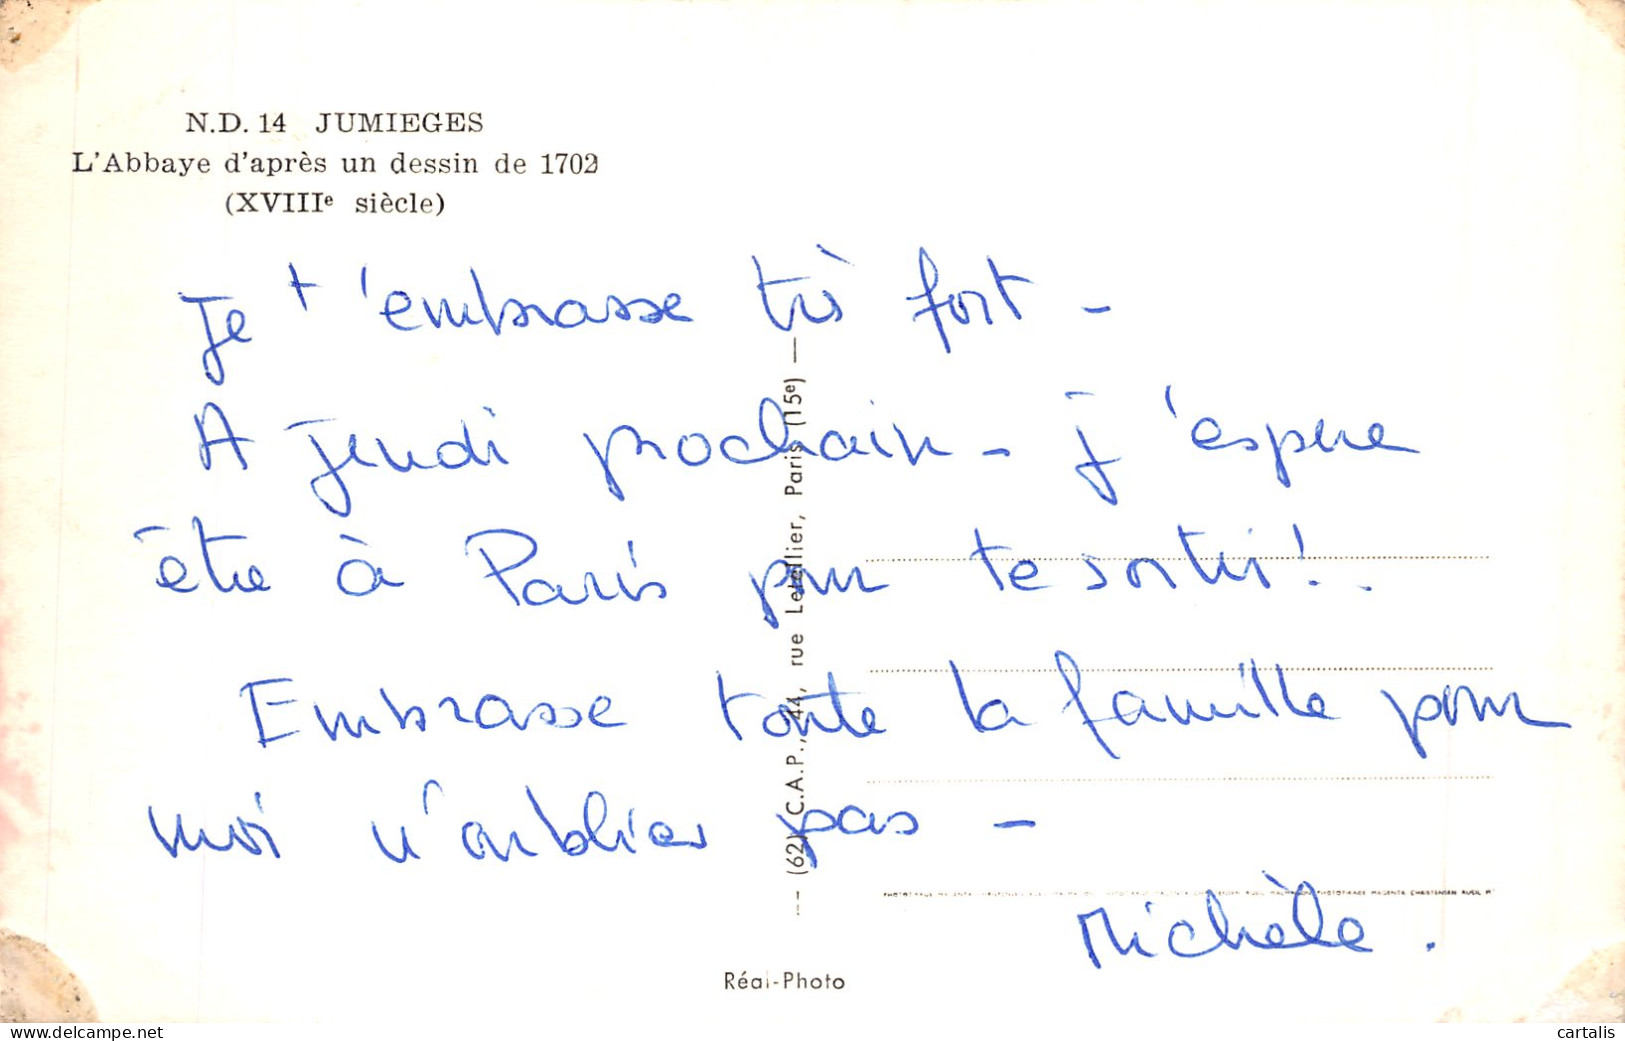 N.D. 14 JUMIEGES
L'Abbaye d'après un dessin de 1702
(XVIIIe siècle)
Je t'embrasse très fort -
A jeudi prochain - j'espère
être à Paris pour te sortir!..
Embrasse toute la famille pour
moi n'oublies pas -
Michèle.
--- (62) C.A.P., 44, rue Letellier, Paris (15e) —
Réal-Photo
www.delcampe.net
cartalis